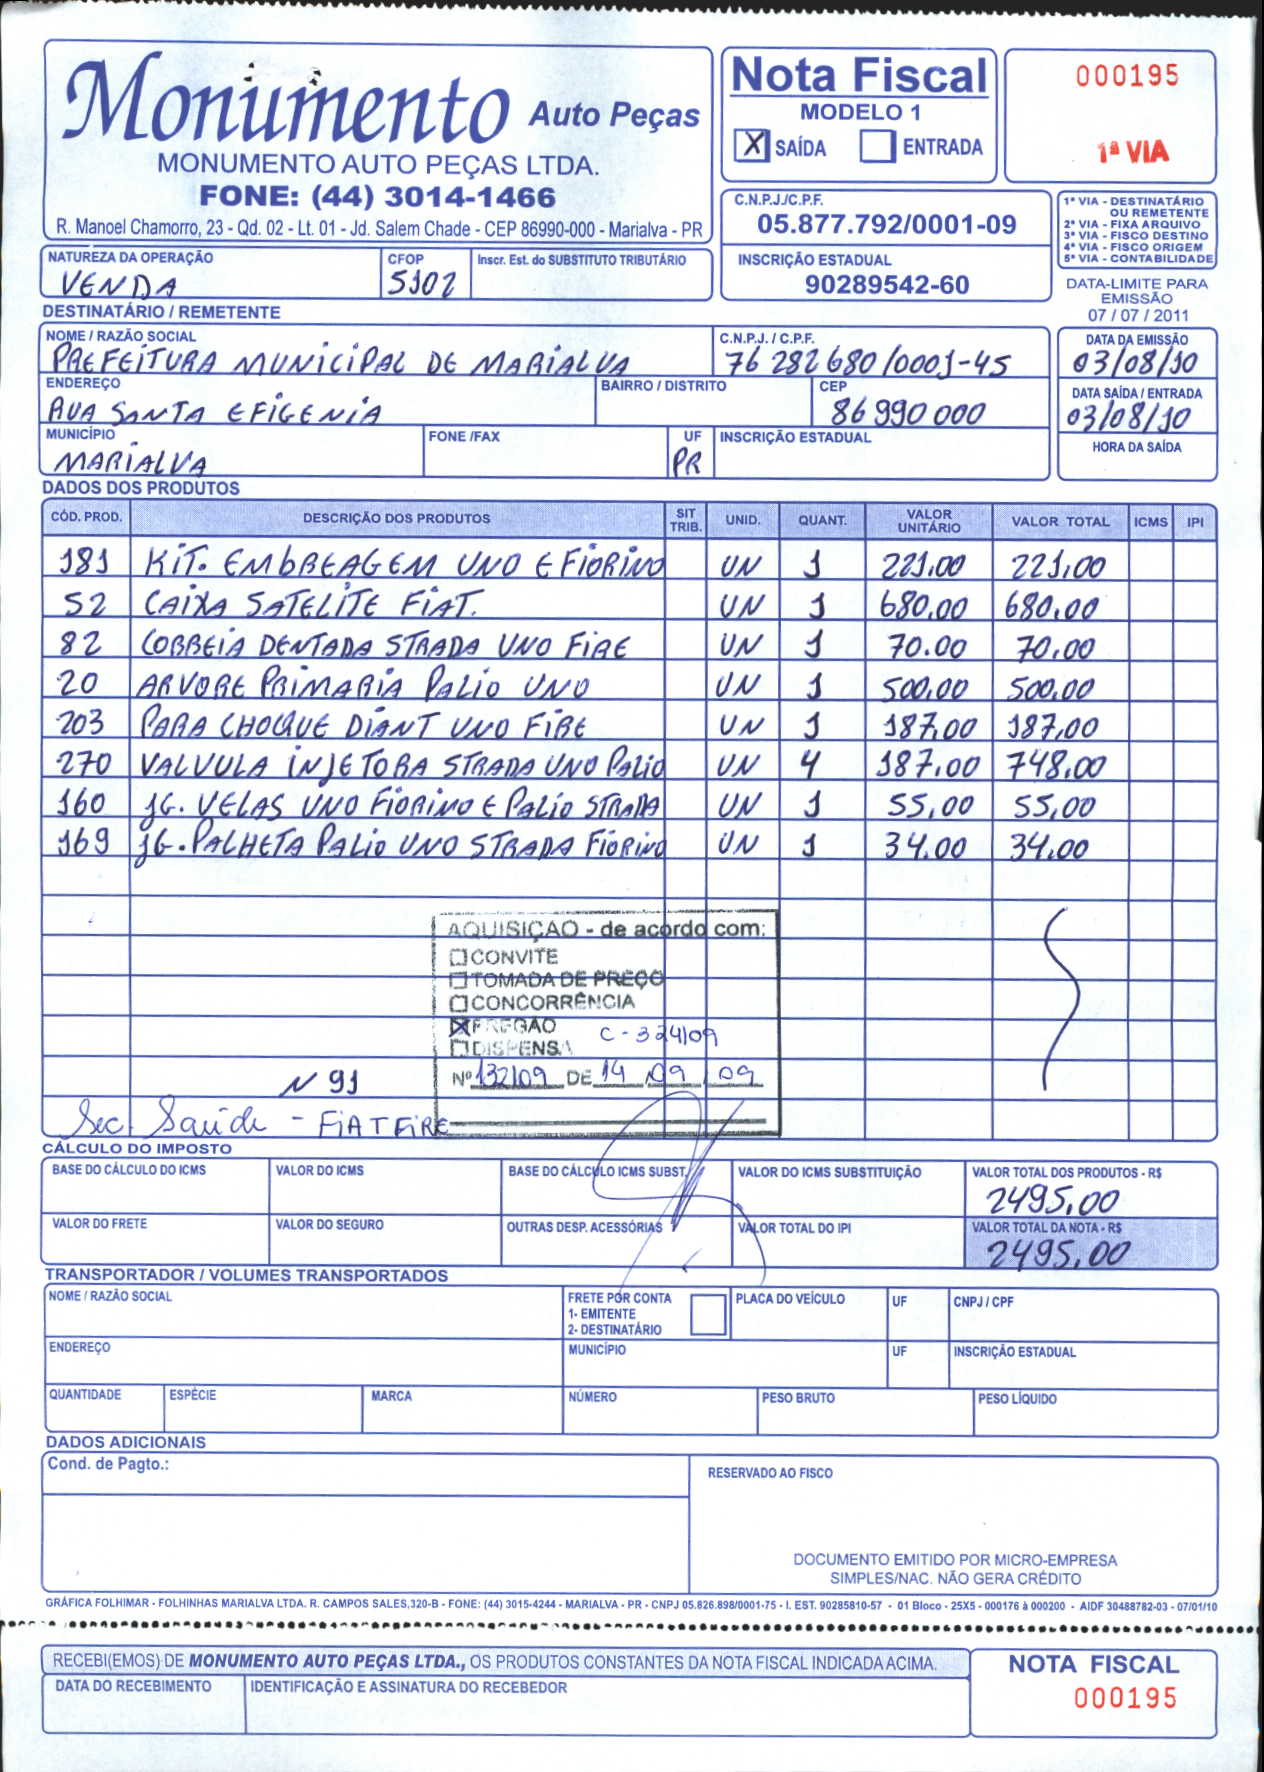 Monumento Auto Peças
MONUMENTO AUTO PEÇAS LTDA.
FONE: (44) 3014-1466
R. Manoel Chamorro, 23 - Qd. 02 - Lt. 01 - Jd. Salem Chade - CEP 86990-000 - Marialva - PR
Nota Fiscal
MODELO 1
X SAÍDA ENTRADA
000195
1ª VIA
C.N.P.J./C.P.F.
05.877.792/0001-09
INSCRIÇÃO ESTADUAL
90289542-60
1ª VIA - DESTINATÁRIO
OU REMETENTE
2ª VIA - FIXA ARQUIVO
3ª VIA - FISCO DESTINO
4ª VIA - FISCO ORIGEM
5ª VIA - CONTABILIDADE
DATA-LIMITE PARA
EMISSÃO
07 / 07 / 2011
NATUREZA DA OPERAÇÃO CFOP Inscr. Est. do SUBSTITUTO TRIBUTÁRIO
VENDA 5102
DESTINATÁRIO / REMETENTE
NOME / RAZÃO SOCIAL C.N.P.J. / C.P.F. DATA DA EMISSÃO
PREFEITURA MUNICIPAL DE MARIALVA 76 282 680/0001-45 03/08/10
ENDEREÇO BAIRRO / DISTRITO CEP DATA SAÍDA / ENTRADA
RUA SANTA EFIGENIA 86 990 000 03/08/10
MUNICÍPIO FONE /FAX UF INSCRIÇÃO ESTADUAL HORA DA SAÍDA
MARIALVA PR
DADOS DOS PRODUTOS
CÓD. PROD. DESCRIÇÃO DOS PRODUTOS SIT TRIB. UNID. QUANT. VALOR UNITÁRIO VALOR TOTAL ICMS IPI
181 KIT. EMBREAGEM UNO E FIORINO UN 1 221,00 221,00
52 CAIXA SATELITE FIAT. UN 1 680,00 680,00
82 CORREIA DENTADA STRADA UNO FIRE UN 1 70.00 70,00
20 ARVORE PRIMARIA PALIO UNO UN 1 500,00 500,00
203 PARA CHOQUE DIANT UNO FIRE UN 1 187,00 187,00
270 VALVULA INJETORA STRADA UNO PALIO UN 4 187,00 748,00
160 JG. VELAS UNO FIORINO E PALIO STRADA UN 1 55,00 55,00
169 JG. PALHETA PALIO UNO STRADA FIORINO UN 1 34.00 34,00
AQUISIÇÃO - de acordo com:
CONVITE
TOMADA DE PREÇO
CONCORRÊNCIA
X PREGÃO C - 324/09
DISPENSA
Nº 132/09 DE 14 / 09 / 09
N 91
Sec. Saúde - FIAT FIRE
CÁLCULO DO IMPOSTO
BASE DO CÁLCULO DO ICMS VALOR DO ICMS BASE DO CÁLCULO ICMS SUBST. VALOR DO ICMS SUBSTITUIÇÃO VALOR TOTAL DOS PRODUTOS - R$
2495,00
VALOR DO FRETE VALOR DO SEGURO OUTRAS DESP. ACESSÓRIAS VALOR TOTAL DO IPI VALOR TOTAL DA NOTA - R$
2495,00
TRANSPORTADOR / VOLUMES TRANSPORTADOS
NOME / RAZÃO SOCIAL FRETE POR CONTA PLACA DO VEÍCULO UF CNPJ / CPF
1- EMITENTE
2- DESTINATÁRIO
ENDEREÇO MUNICÍPIO UF INSCRIÇÃO ESTADUAL
QUANTIDADE ESPÉCIE MARCA NÚMERO PESO BRUTO PESO LÍQUIDO
DADOS ADICIONAIS
Cond. de Pagto.: RESERVADO AO FISCO
DOCUMENTO EMITIDO POR MICRO-EMPRESA
SIMPLES/NAC. NÃO GERA CRÉDITO
GRÁFICA FOLHIMAR - FOLHINHAS MARIALVA LTDA. R. CAMPOS SALES,320-B - FONE: (44) 3015-4244 - MARIALVA - PR - CNPJ 05.826.898/0001-75 - I. EST. 90285810-57 - 01 Bloco - 25X5 - 000176 à 000200 - AIDF 30488782-03 - 07/01/10
RECEBI(EMOS) DE MONUMENTO AUTO PEÇAS LTDA., OS PRODUTOS CONSTANTES DA NOTA FISCAL INDICADA ACIMA.
DATA DO RECEBIMENTO IDENTIFICAÇÃO E ASSINATURA DO RECEBEDOR
NOTA FISCAL
000195